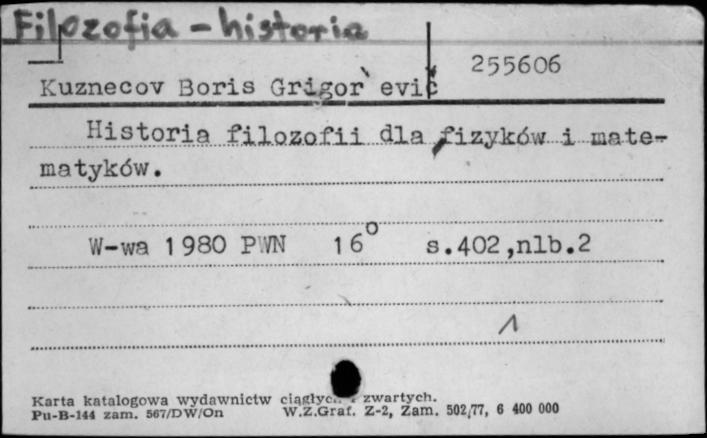 Filozofia - historia
255606
Kuznecov Boris Grigor`evič
Historia filozofii dla fizyków i mate-
matyków.
W-wa 1980 PWN 16° s.402,nlb.2
Karta katalogowa wydawnictw ciągłych i zwartych.
Pu-B-144 zam. 567/DW/On W.Z.Graf. Z-2, Zam. 502/77, 6 400 000